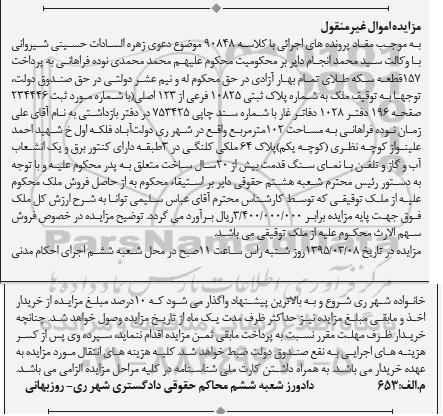 مزایده اموال غیر منقول
به موجب مفاد پرونده های اجرائی با کلاسه ۹۰۸۴۸ موضوع دعوی زهره السادات حسینی شیروانی
با وکالت سید محمد انجام دایر بر محکومیت محکوم علیهم محمد محمدی نوده فراهانی به پرداخت
۱۵۷قطعه سکه طلای تمام بهار آزادی در حق محکوم له و نیم عشر دولتی در حق صندوق دولت،
توجها به توقیف ملک به شماره پلاک ثبتی ۱۰۸۲۵ فرعی از ۱۲۳ اصلی(با شماره مورد ثبت ۲۳۴۴۴۶
صفحه ۱۹۶ دفتر ۱۰۲۸ دفاتر غار با شماره سند چاپی ۷۵۳۴۲۵ در دفتر بازداشتی به نام آقای علی
زمان نوده فراهانی به مساحت ۱۰۲مترمربع واقع در شهر ری دولت آباد فلکه اول خ شهید احمد
علینواز کوچه نظری (کوچه یکم)پلاک ۶۴ ملکی کلنگی در ۲طبقه دارای کنتور برق و یک انشعاب
آب و گاز و تلفن با نمای سنگ قدمت بیش از ۲۰سال ساخت متعلق به پدر محکوم علیه و با توجه
به دستور رئیس محترم شعبه هشتم حقوقی دایر بر استیفاء محکوم به از حاصل فروش ملک محکوم
علیه از ملک توقیفی که توسط کارشناس محترم آقای عباس سلیمی توانا به شرح ارزش کل ملک
فوق جهت پایه مزایده برابر ۳/۴۰۰/۰۰۰/۰۰۰ریال برآورد می گردد. توضیح مزایده در خصوص فروش
سهم الارث محکوم علیه از ملک توقیفی می باشد.
مزایده در تاریخ ۱۳۹۵/۰۳/۰۸روز شنبه راس ساعت ۱۱صبح در محل شعبه ششم اجرای احکام مدنی
خانواده شهر ری شروع و به بالاترین پیشنهاد واگذار می شود که ۱۰درصد مبلغ مزایده از خریدار
اخذ و مابقی مبلغ مزایده نیز حداکثر ظرف مدت یک ماه از تاریخ مزایده وصول خواهد شد. چنانچه
خریدار ظرف مهلت مقرر نسبت به پرداخت مابقی ثمن مزایده اقدام ننماید، سپرده وی پس از کسر
هزینه های اجرایی به نفع صندوق دولت ضبط خواهد شد. کلیه هزینه های انتقال مورد مزایده به
عهده خریدار می باشد. به همراه داشتن کارت ملی شناسنامه در کلیه مراحل مزایده الزامی می باشد.
م.الف:۶۵۳ دادورز شعبه ششم محاکم حقوقی دادگستری شهر ری- روزبهانی